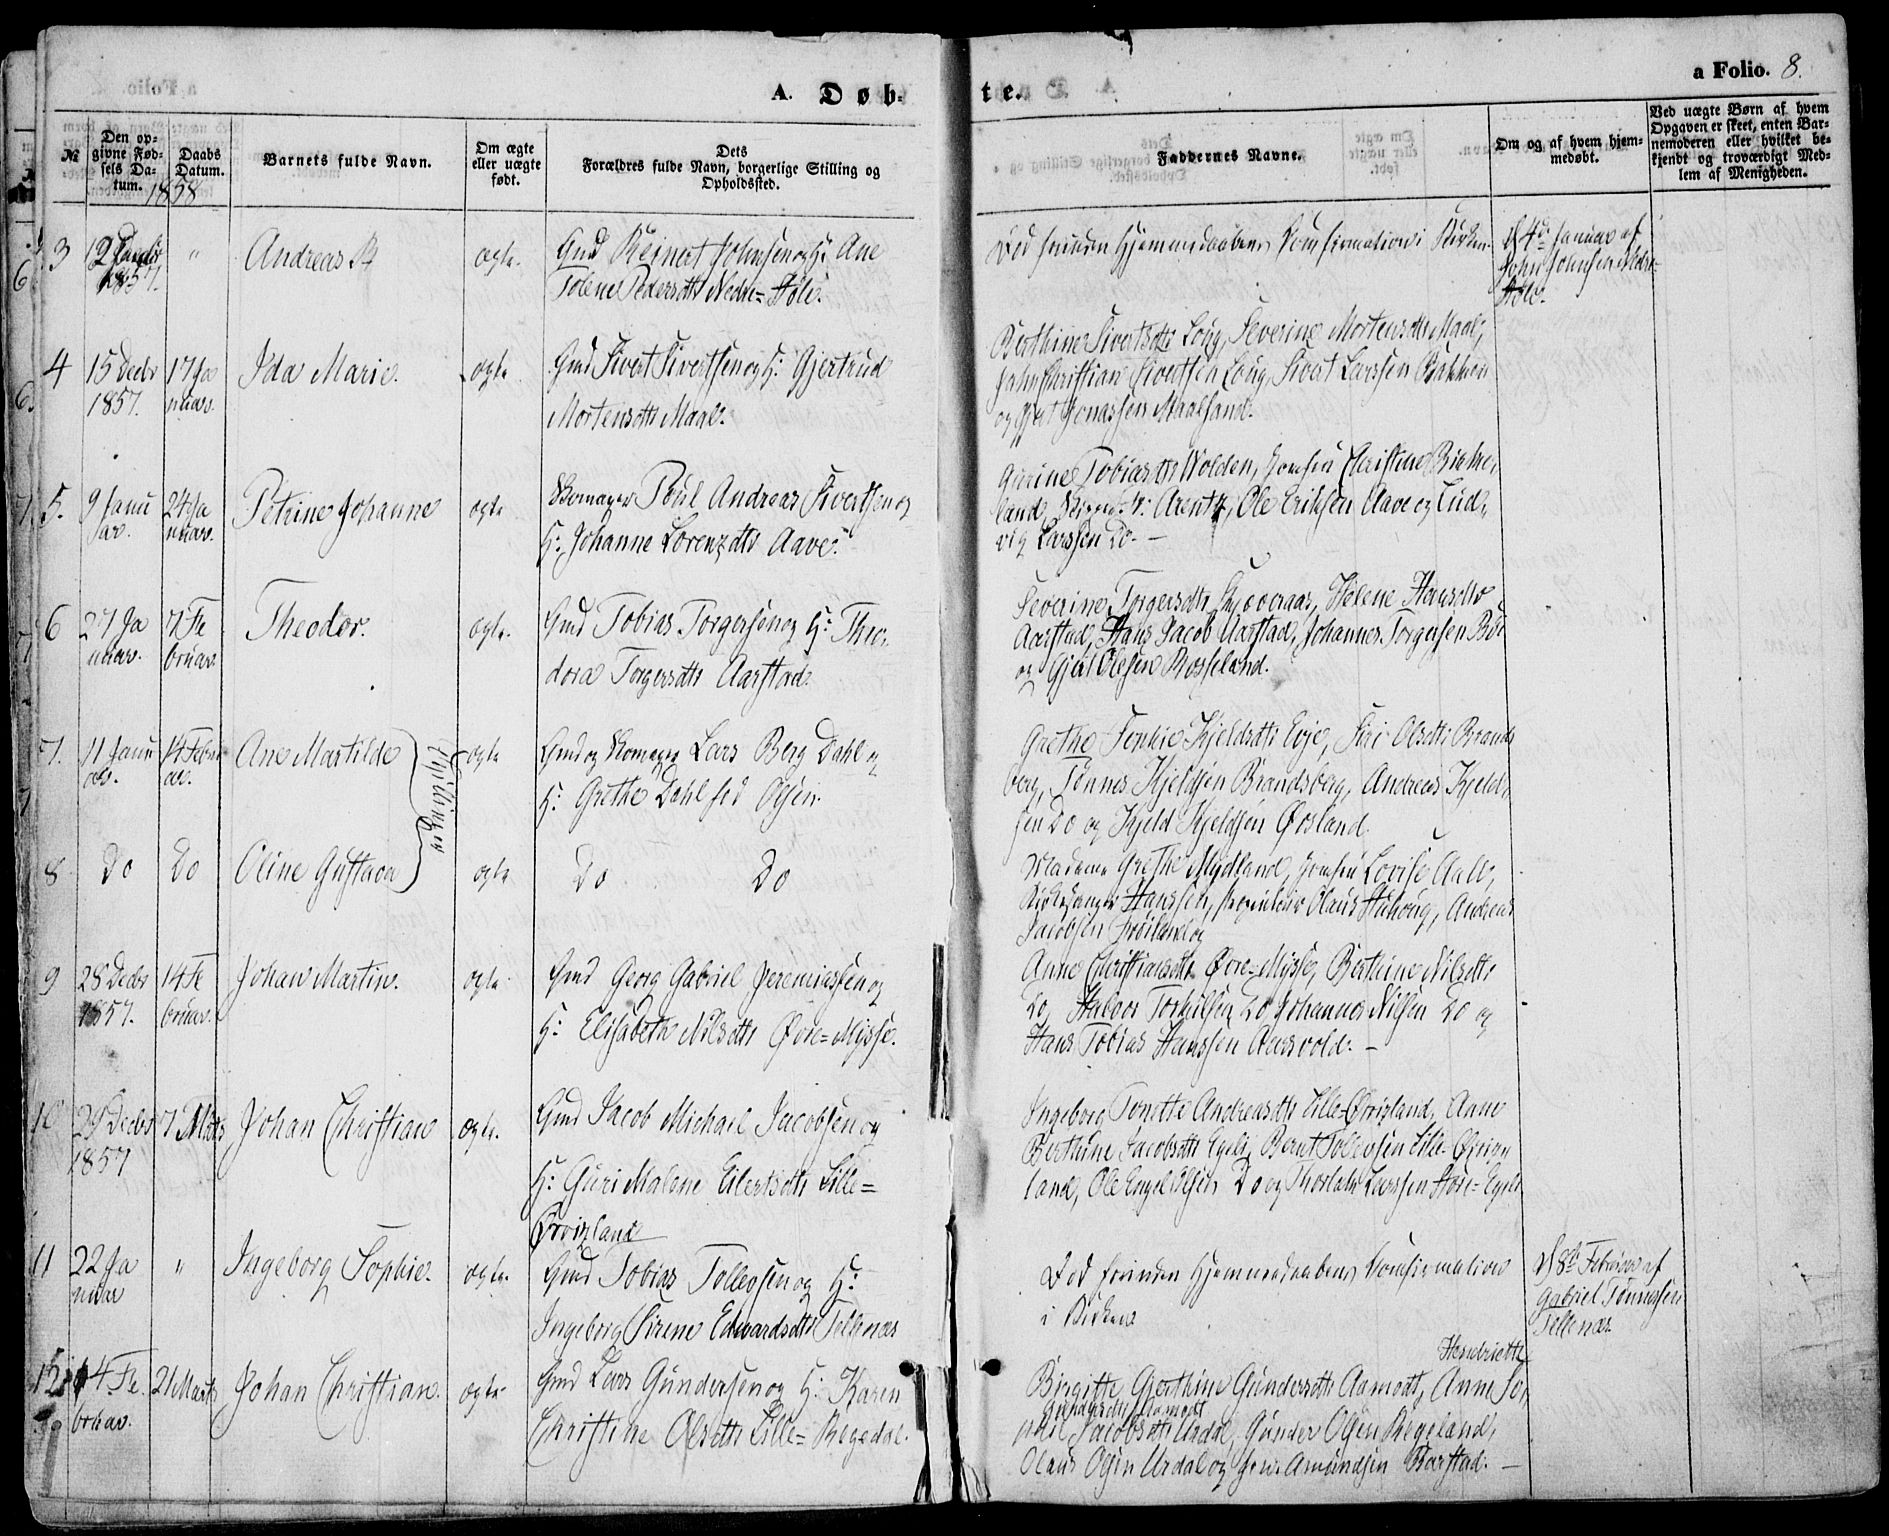 A. Døb-
te.
a Folio. 8.
№
Den opgivne Fødsels Datum.
Daabs Datum.
Barnets fulde Navn.
Om ægte eller uægte født.
Dets
Forældres fulde Navn, borgerlige Stilling og
Opholdssted.
Faddernes Navne.
Om og af hvem hjemmedøbt.
Ved uægte Børn af hvem
Opgaven er skeet, enten Barnemoderen
eller hvilket bekjendt
og troværdigt Medlem
af Menigheden.
1858
3
1857.
"
Andreas
ægte.
Gmd Reinert Johnsen og H: Ane
Tolene Pedersdtr Nedre=
Død forinden Hjemmedaabens Confirmation i Kirken.
d 4de Januar af
John Johnsen Nedre=
4
15 Decbr
1857.
17 Ja
nuar.
Ida Marie.
ægte
Gmd Sivert Sivertsen og H: Gjertrud
Mortensdtr Maal.
Berthine Sivertsdtr Loug, Severine Mortensdtr Maal,
John Christian Sivertsen Loug, Sivert Larssen Bakken
og Jonassen
5.
9 Janu
ar.
24 Ja
nuar.
Petrine Johanne
ægte
Skomager Poul Andreas Sivertsen og
H: Johanne Lorenzdtr Aave.
Gurine Tobiasdtr Wolden, Jomfru Christine Birke,
land, Arentz, Ole Eriksen Aave og Lud,
vig Larssen Do. —
6
27 Ja
nuar.
7 Fe
bruar.
Theodor.
ægte.
Gmd Tobias Torgersen og H: Theo,
dora Torgersdtr Aarstad.
Severine Torgersdtr Skjeveraas, Helene Hansdtr
Aarstad, Hans Jacob Aarstad, Johannes Torgersen Bøe
og Gjert Olesen Rosseland.
7.
11 Janu
ar.
14 Febru
ar.
Ane Martilde
Tvillinger
ægte
Gmd og Skomager Lars Berg Dahl og
H: Grethe Dahl fød Olsen.
Grethe Tonkie Kjeldsdtr Eøje, Siri Olsdtr Brands
berg, Tønnes Kjeldsen Brandsberg, Andreas Kjeld,
sen Do og Kjeld Kjeldsen Øvsland.
8
Do
Do
Oline Gustava
ægte
Do Do
Madame Grethe Mydland, Jomfru Lovise Aall,
Kirkesanger Hanssen, Olaus Stuhoug, Andreas
Jacobsen Frøiland og
9
28 Decbr
1857.
14 Fe
bruar.
Johan Martin.
ægte
Gmd Georg Gabriel Jeremiassen og
H: Elisabeth Nilsdtr Øvre=Mysse.
Anne Christiansdtr Øvre=Mysse, Berthine Nilsdtr
Do, Halvor Torkilsen Do, Johannes Nilsen Do og
Hans Tobias Hanssen —
10
29 Decbr
1857
7 Marts
Johan Christian
ægte.
Gmd Jacob Michael Jacobsen og
H: Guri Malene Eilertsdtr Lille=
Ørsland
Ingeborg Tonette Andreasdtr Anne
Berthine Jacobsdtr Egeli, Bernt Tollevsen Lille-
land, Ole Engel Olsen Do og Thorlak Larssen Store=Egeli
11
22 Ja
nuar
"
Ingeborg Sophie.
ægte.
Gmd Tobias Tollevsen og H:
Ingeborg Sirene Edvardsdtr Tellenæs
Død forinden Hjemmedaabens Confirmation
i Kirken
d 8de Februar af
Gabriel Tønnessen
Tellenæs
12
14 Fe.
bruar.
21 Marts
Johan Christian.
ægte
Gmd Lars Gundersen og H: Karen
Christine Olsdtr Lille= Regedal.
Henriette
Birgitte Gjerthine Gundersdtr Aamodt, Anne So,
Gundersdtr Aamodt
phie Jacobsdtr Urdal, Gunder Olsen Regeland,
Olaus Olsen Urdal og Jens Amundsen Barstad. —